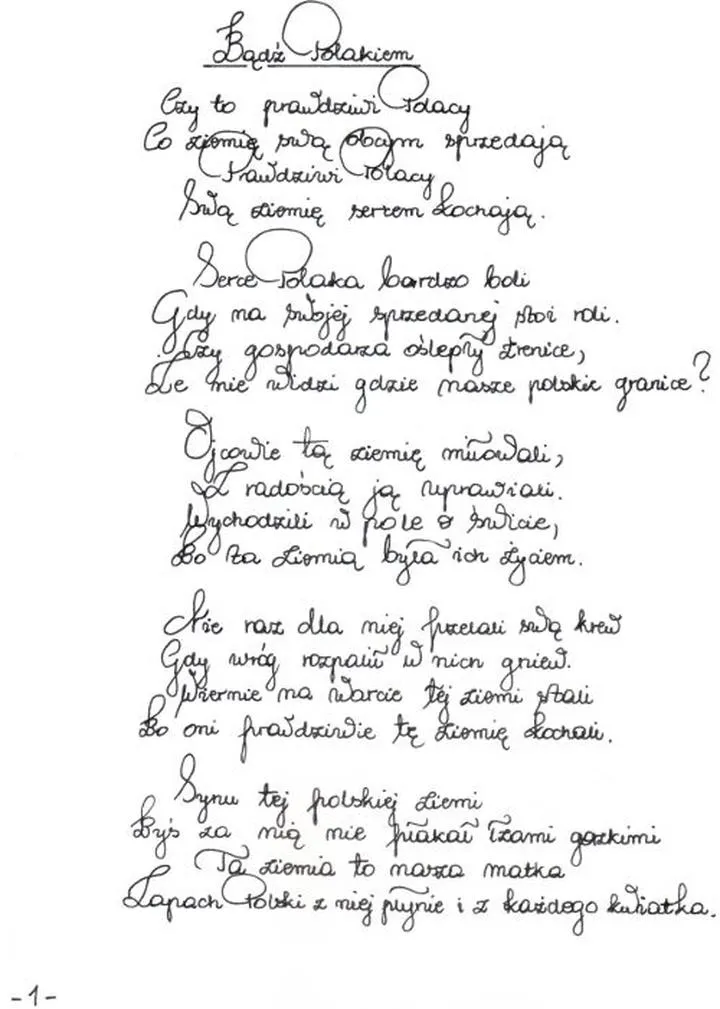 Bądź Polakiem
Czy to prawdziwi Polacy
Co ziemię swą obcym sprzedają
Prawdziwi Polacy
Swą ziemię sercem kochają.
Serce Polaka bardzo boli
Gdy na swojej sprzedanej stoi roli.
Czy gospodarza oślepły źrenice,
Że nie widzi gdzie nasze polskie granice?
Ojcowie tą ziemię miłowali,
Z radością ją uprawiali.
Wychodzili w pole o świcie,
Bo ta ziemia była ich życiem.
Nie raz dla niej przelali swą krew
Gdy wróg rozpalił w nich gniew.
Wiernie na warcie tej ziemi stali
Bo oni prawdziwie tę ziemię kochali.
Synu tej polskiej ziemi
Byś za nią nie płakał łzami gorzkimi
Ta ziemia to nasza matka
Zapach Polski z niej płynie i z każdego kwiatka.
-1-